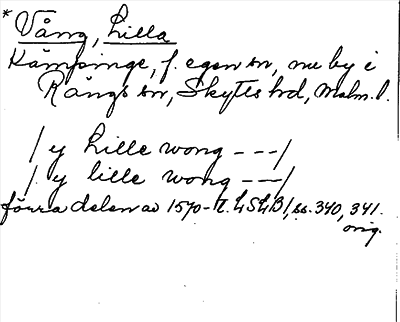 * Vång, Lilla
Kämpinge, f. egen sn, nu by i
Rängs sn, Skytts hd, Malm. l.
/ y Lille wong --- /
/ y lille wong --- /
förra delen av 1570-t. LSLB 1, ss. 340, 341.
orig.